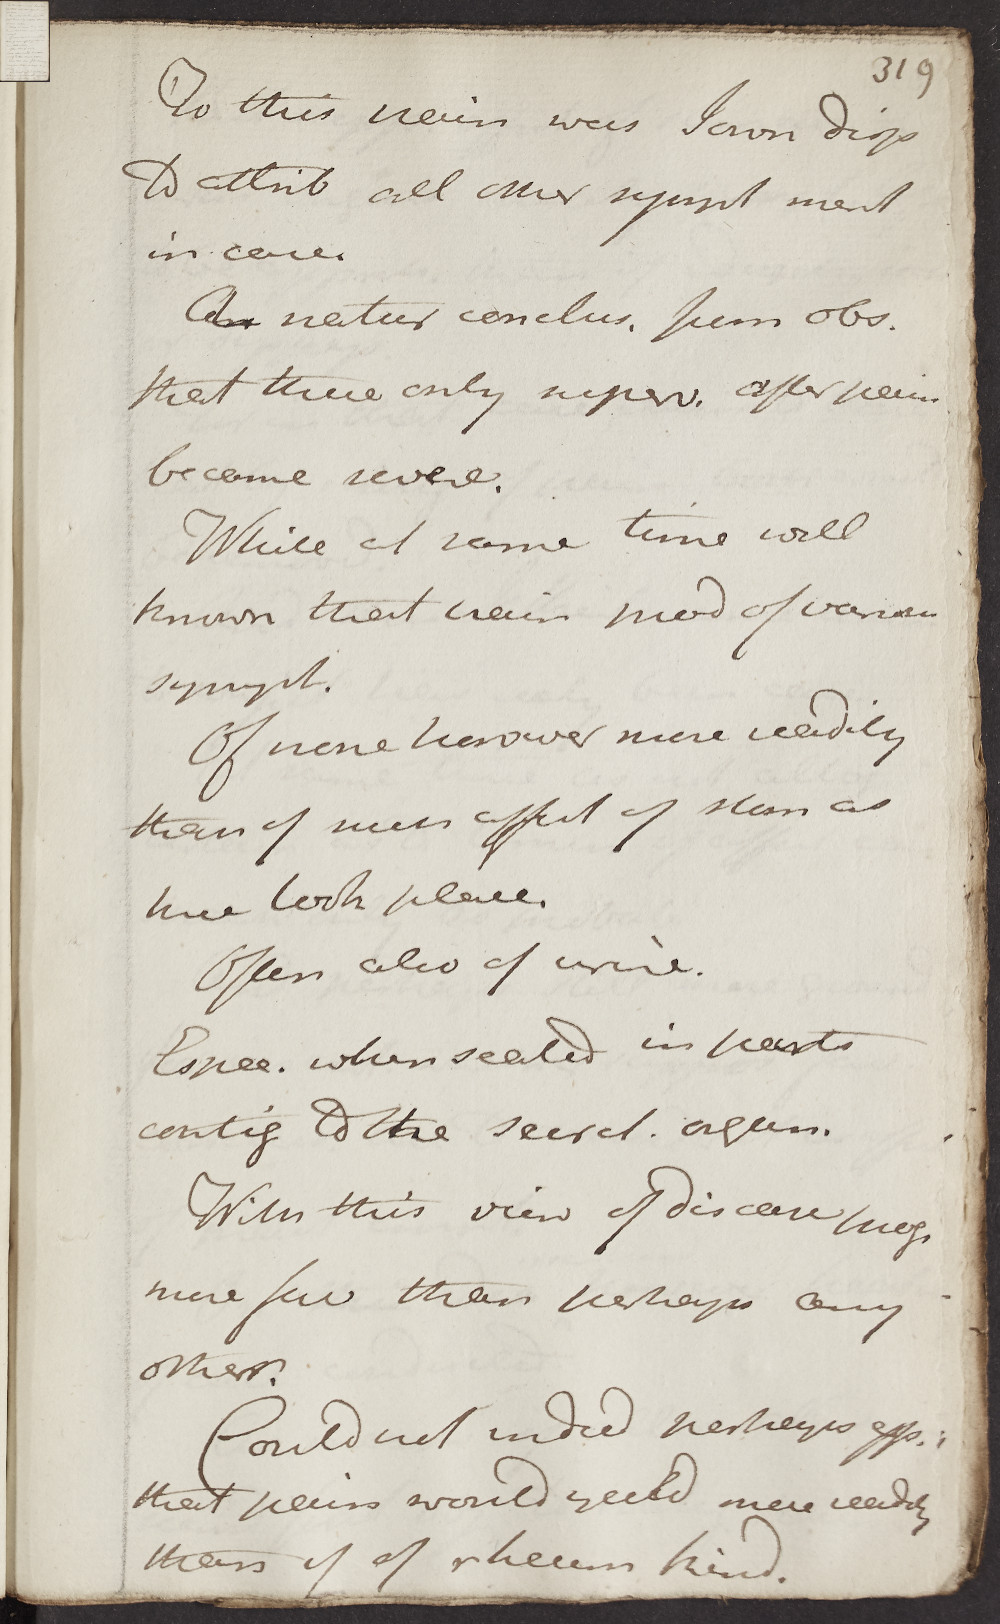 319
To this pain was I own disp
to attrib all other sympt ment
in case.
A natur conclus. from obs.
that these only superv. after pain
became severe.
While at same time well
known that pain prod of various
sympt.
Of none however more readily
than of such affect of stom as
here took place.
Often also of urine.
Espec. when seated in parts
contig to the secret. organ.
With this view of disease prog.
more fav than perhaps any
other.
Could not indeed perhaps
that pains would yield more readily
than if of rheum kind.